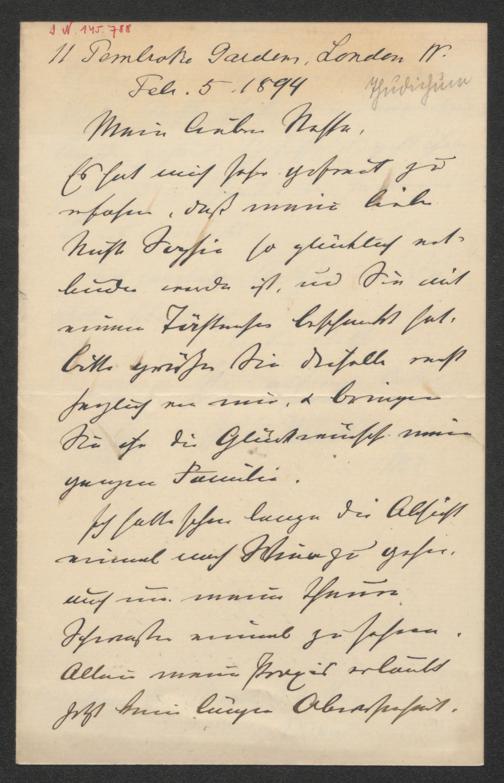 J.N. 145.788
11 Pembroke Gardens, London W.
Feb. 5. 1894
Thudichum
Mein lieber Neffe,
Es hat mich sehr gefreut zu
erfahren, daß meine liebe
Nichte Sophie so glücklich ent-
bunden worden ist, und Sie mit
einem Töchterchen beschenkt hat.
bitte grüßen Sie dieselbe recht
herzlich von mir, & bringen
Sie ihr die Glückwünsche meiner
ganzen Familie.
Ich hatte schon lange die Absicht
einmal nach Wien zu gehen,
auch um meine theure
Schwester einmal zu sehen.
Allein meine Praxis erlaubt
jetzt keine lange Abwesenheit.